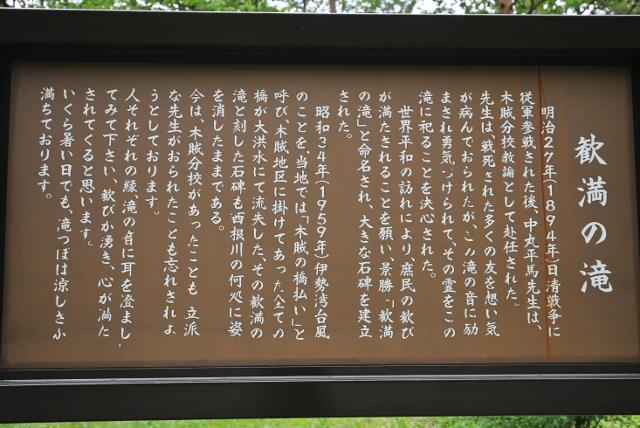 歓満の滝
明治27年(1894年)日清戦争に
従軍参戦された後、中丸平馬先生は、
木賊分校教諭として赴任された。
先生は、戦死された多くの友を想い気
が病んでおられたが、この滝の音に励
まされ勇気づけられて、その霊をこの
滝に祀ることを決心された。
世界平和の訪れにより、庶民の歓び
が満たされることを願い、景勝「歓満
の滝」と命名され、大きな石碑を建立
された。
昭和34年(1959年)伊勢湾台風
のことを当地では「木賊の橋払い」と
呼び、木賊地区に掛けてあった全ての
橋が大洪水にて流失した。その歓満の
滝と刻した石碑も西根川の何処に姿
を消したままである。
今は、木賊分校があったことも 立派
な先生がおられたことも忘れされよ
うとしております。
人それぞれの縁、滝の音に耳を澄まし
てみて下さい、歓びが湧き、心が満た
されてくると思います。
いくら暑い日でも、滝つぼは涼しさふ
満ちております。